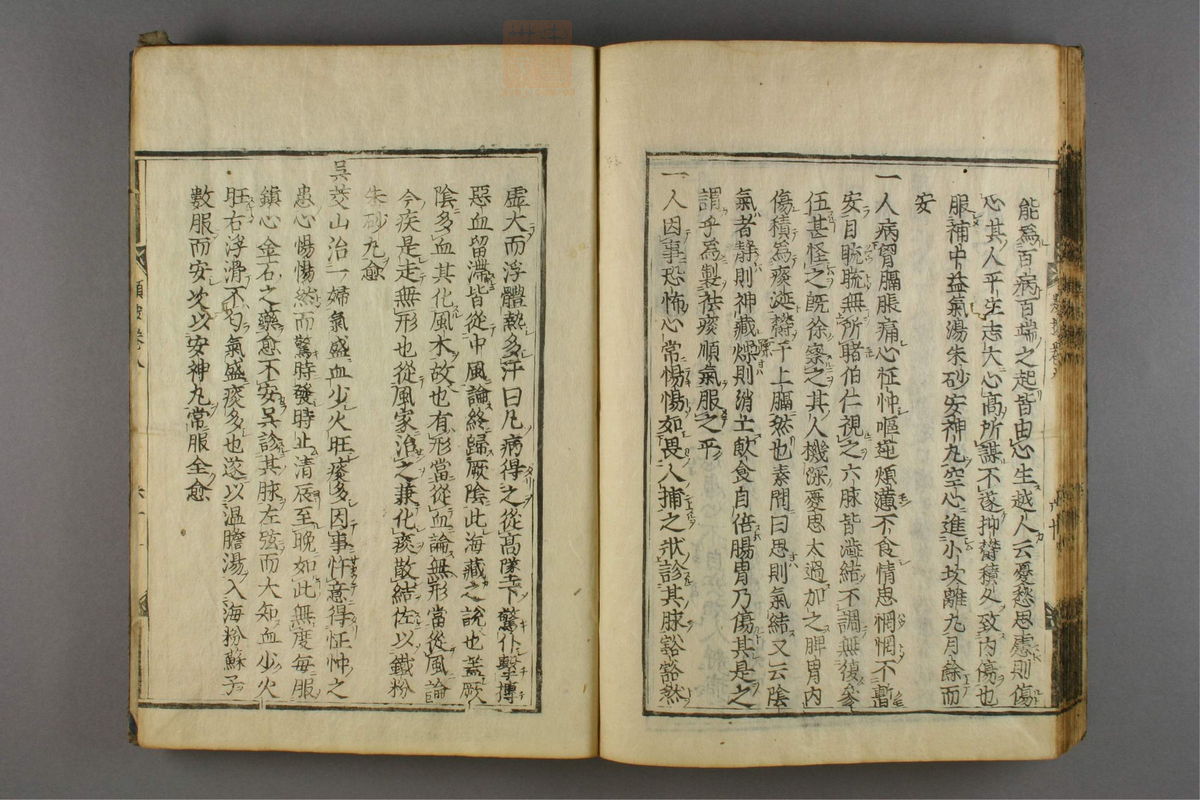 能爲百病百端之起皆由心生越人云憂愁思慮則傷
心其人平生志大心高所謀不遂抑欝積久致内傷也
服補中益氣湯朱砂安神丸空心進小坎離丸月餘而
安
一人病胷膈脹痛心怔忡嘔逆煩懣不食情思惘惘不暫
安目䀮䀮無所睹伯仁視之六脉皆澁結不調無復參
伍甚怪之既徐察之其人機深憂思太過加之脾胃内
傷積爲痰涎欝于上膈然也素問曰思則氣結又云陰
氣者靜則神藏燥則消亡飲食自倍腸胃乃傷其是之
謂乎爲製祛痰順氣服之平
一人因事恐怖心常惕惕如畏人捕之狀診其脉豁豁然
虚大而浮體熱多汗曰凡病得之從高墜下驚仆擊搏
惡血留滯皆從中風論終歸厥陰此海藏之說也葢厥
陰多血其化風木故也有形當從血論無形當從風論
今疾是走無形也從風家治之兼化痰散結佐以鐵粉
朱砂丸愈
吳茭山治一婦氣盛血少火旺痰多因事忤意得怔忡之
患心惕惕然而驚時發時止清辰至晚如此無度每服
鎮心金石之藥愈不安吳診其脉左弦而大知血少火
旺右浮滑不匀氣盛痰多也遂以温膽湯入海粉蘇子
數服而安次以安神丸常服全愈